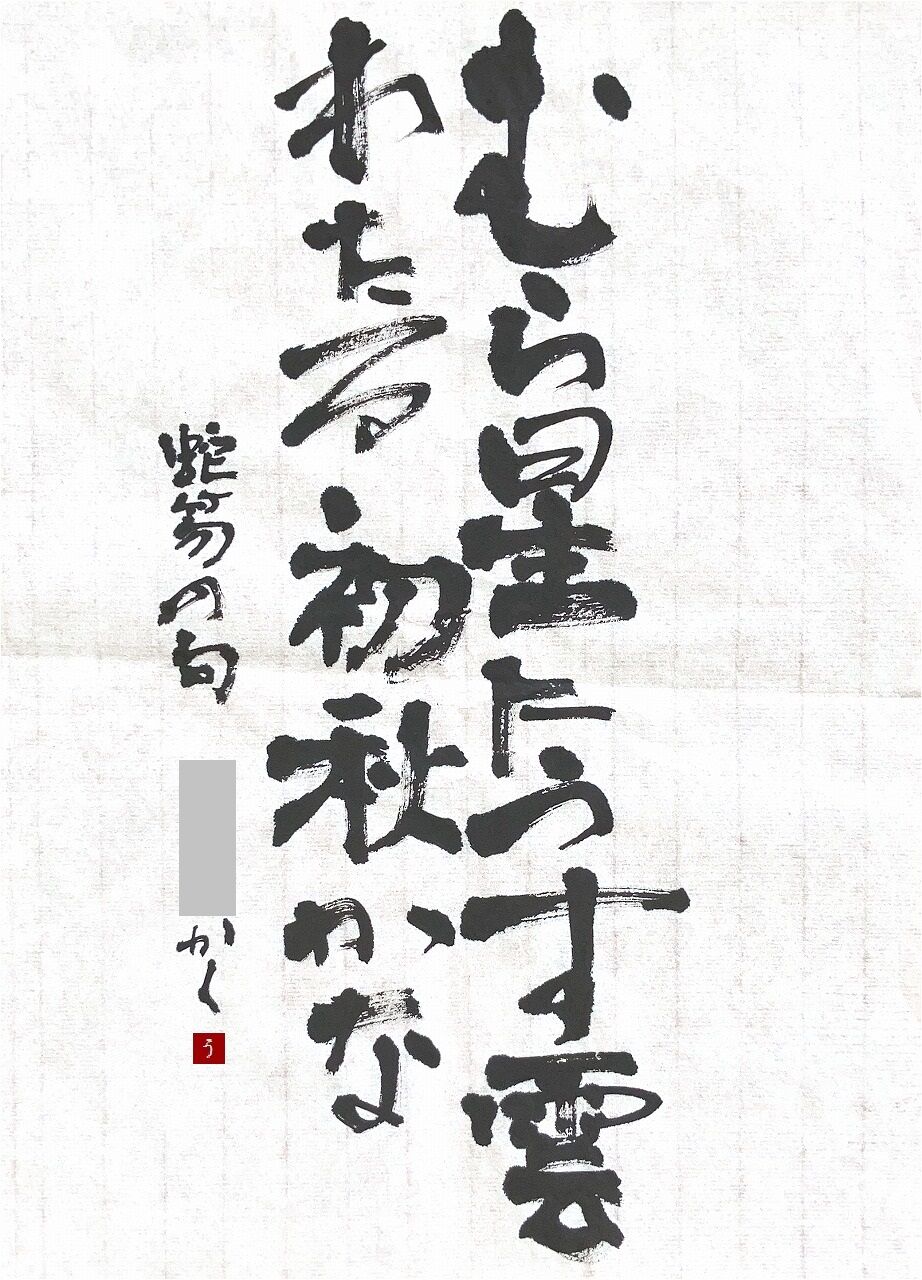 むら星にうす雲
わたる初秋かな
蛇笏の句
かく
う